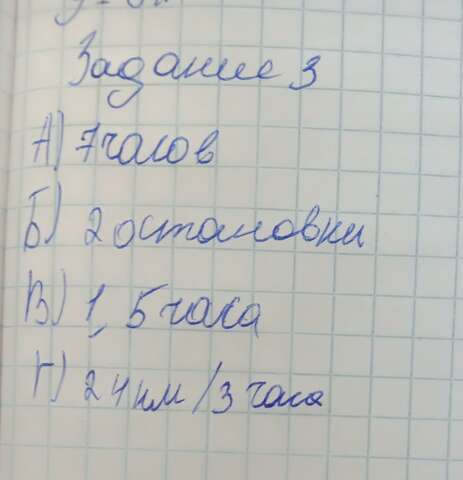 Задание 3
А) 7 часов
Б) 2 остановки
В) 1,5 часа
Г) 24 км/3 часа